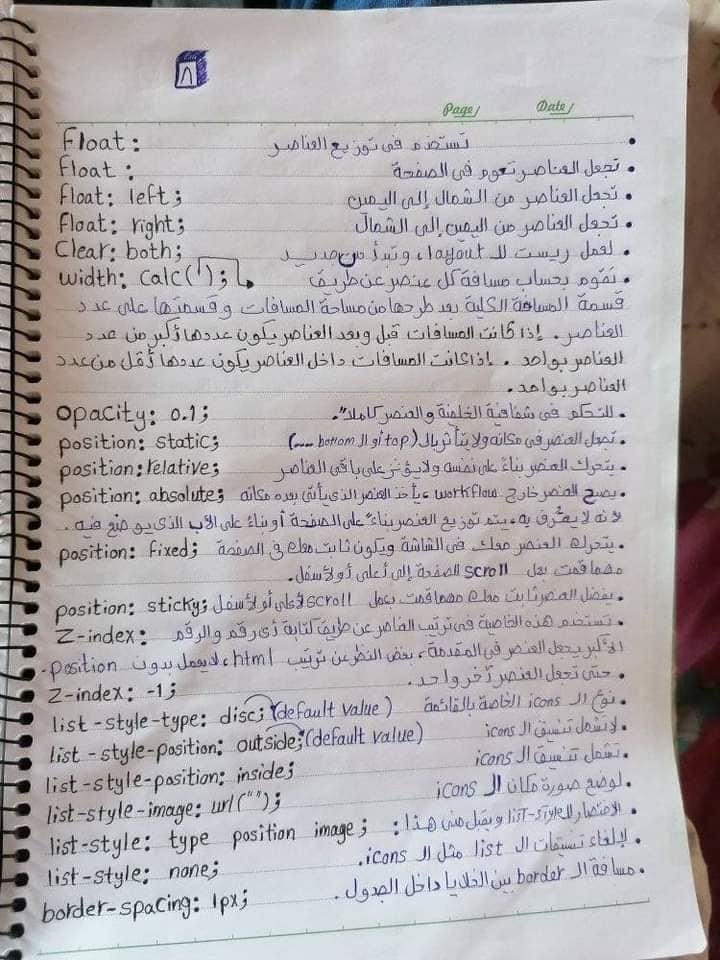 ٨
Page/ Date/
Float: تستخدم فى توزيع العناصر •
Float: تجعل العناصر تعوم فى الصفحة •
Float: left; تجعل العناصر من الشمال إلى اليمين •
Float: right; تجعل العناصر من اليمين إلى الشمال •
Clear: both; لعمل ريست للـ layout، وتبدأ من جديد •
width: calc(); تقوم بحساب مسافة كل عنصر عن طريق •
قسمة المساحة الكلية بعد طرحها من مساحة المسافات وقسمتها على عدد
العناصر. إذا كانت المسافات قبل وبعد العناصر يكون عددها أكبر من عدد
العناصر بواحد. إذا كانت المسافات داخل العناصر يكون عددها أقل من عدد
العناصر بواحد.
opacity: 0.1; للتحكم فى شفافية الخلفية والعنصر كاملاً. •
position: static; تجعل العنصر فى مكانه ولا يتأثر بالـ (top أو الـ bottom ....) •
position: relative; يتحرك العنصر بناءً على نفسه ولا يؤثر على باقى العناصر •
position: absolute; يصبح العنصر خارج workflow، يأخذ العنصر الذى يأتى بعده مكانه •
لأنه لا يعترف به، يتم توزيع العنصر بناءً على الصفحة أو بناءً على الأب الذى يوضع فيه.
position: fixed; يتحرك العنصر معك فى الشاشة ويكون ثابت معك فى الصفحة •
مهما قمت بعمل scroll الصفحة إلى أعلى أو لأسفل.
position: sticky; يفضل العنصر ثابت معك مهما قمت بعمل scroll لأعلى أو لأسفل •
Z-index: تستخدم هذه الخاصية فى ترتيب العناصر عن طريق كتابة أى رقم والرقم •
الأكبر يجعل العنصر فى المقدمة، بغض النظر عن ترتيب html، لا يعمل بدون position.
Z-index: -1; حتى تجعل العنصر آخر واحد. •
list-style-type: disc; (default value) نوع الـ icons الخاصة بالقائمة •
list-style-position: outside; (default value) لا تشمل تنسيق الـ icons •
list-style-position: inside; تشمل تنسيق الـ icons •
list-style-image: url(""); لوضع صورة مكان الـ icons •
list-style: type position image; الاختصار لـ list-style ويقبل هذا: •
list-style: none; لإلغاء تنسيقات الـ list مثل الـ icons. •
border-spacing: 1px; مسافة الـ border بين الخلايا داخل الجدول. •